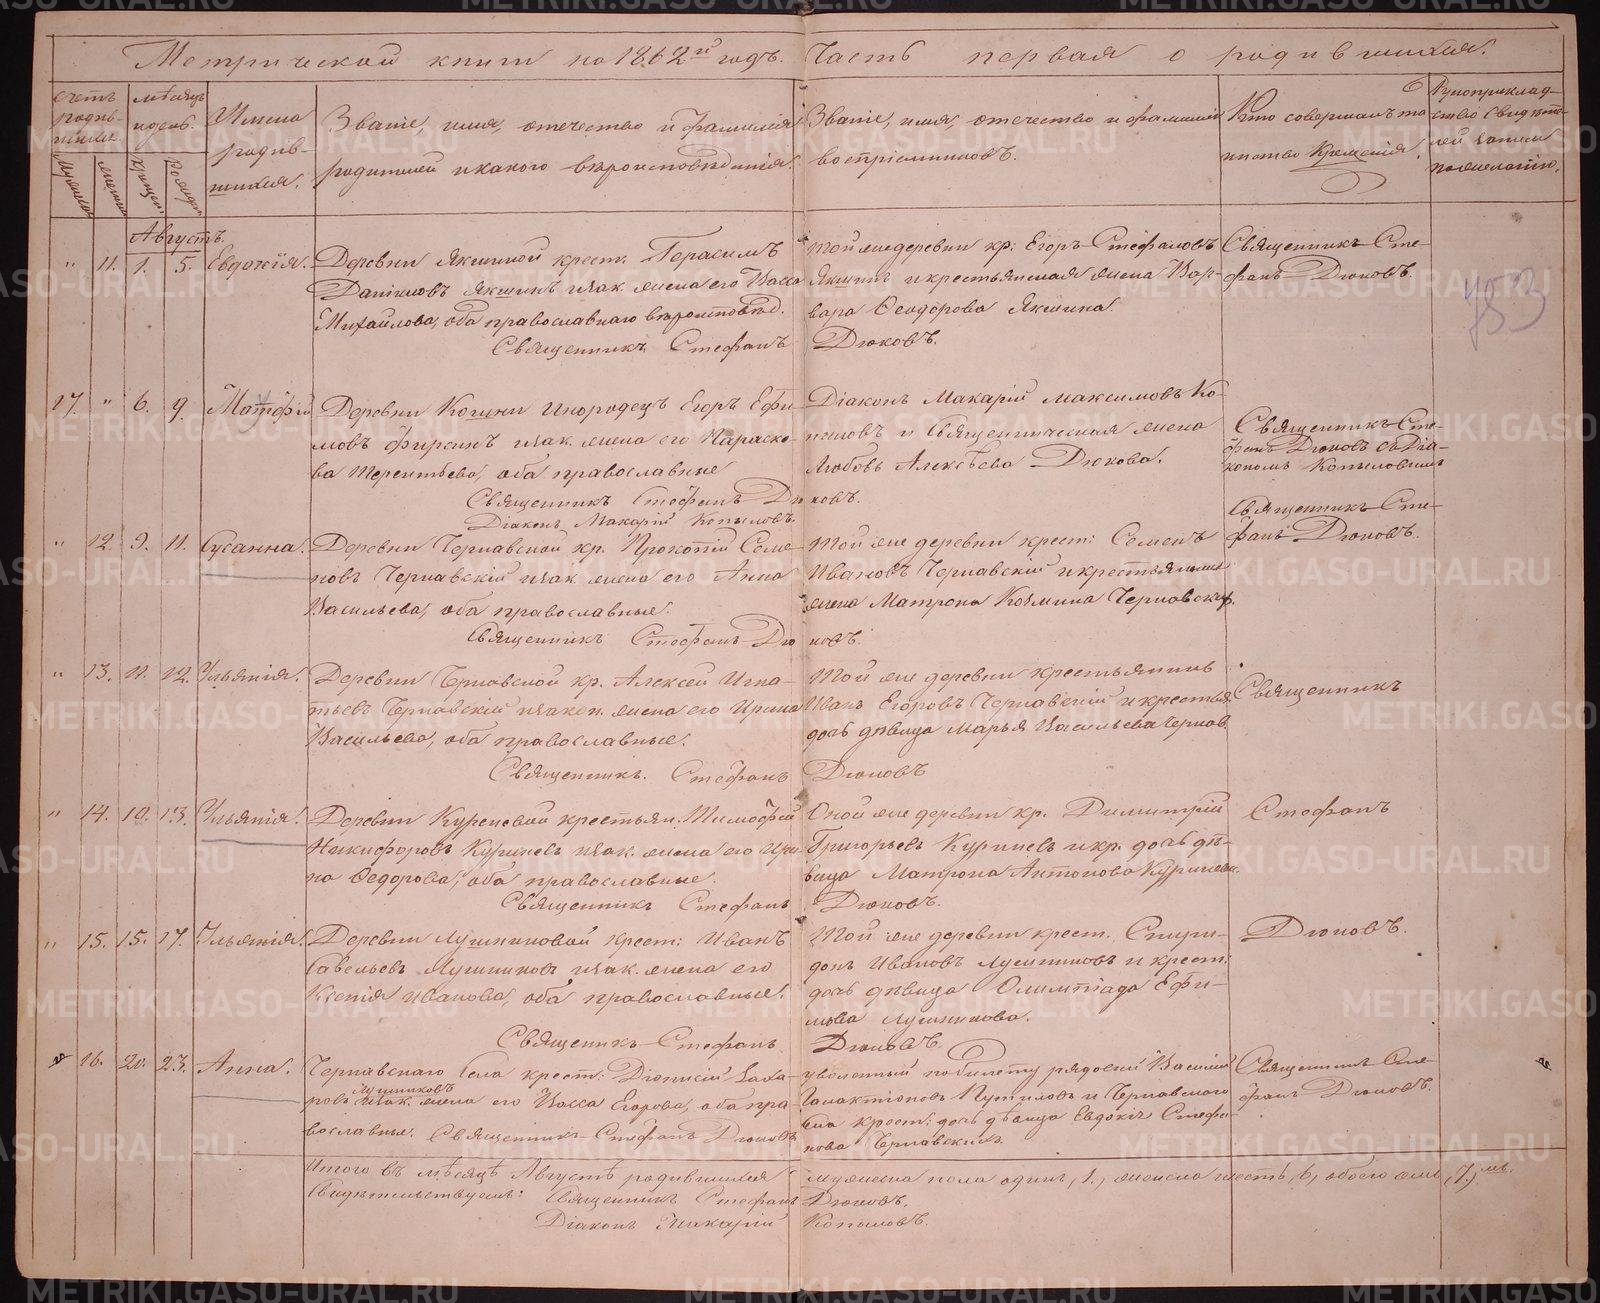 Метрической книги на 1862й годъ. Часть первая о родившихся.
счетъ родив-шихся.
мѣсяцъ и день.
Имена родив-шихся.
Званіе, имя, отечество и фамилія
родителей и какого вѣроисповѣданія.
Званіе, имя, отечество и фамилія
воспріемниковъ.
Кто совершалъ та-
инство Крещенія.
Рукоприклад-
ство свидѣте-
лей записи
по желанію.
Августъ.
" 11. 1. 5. Евдокія.
Деревни Якшиной крест. Герасимъ
Даниловъ Якшинъ и зак. жена его Васса
Михайлова, оба православнаго вѣроисповѣд.
Священникъ Стефанъ
Той же деревни кр: Егоръ Стефановъ
Якшинъ и крестьянская жена Вар-
вара Ѳеодорова Якшина.
Дюковъ.
Священникъ Сте-
фанъ Дюковъ.
783
17. " 6. 9. Матфій
Деревни Когшни Инородецъ Егоръ Ефи-
мовъ и зак. жена его Параско-
ва Терентьева, оба православные
Священникъ Стефанъ Дю
Діаконъ Макарій Копыловъ.
Діаконъ Макарій Максимовъ Ко-
пыловъ и Священническая жена
Любовь Алексѣева Дюкова.
ковъ.
Священникъ Сте-
фанъ Дюковъ съ Діа-
кономъ Копыловымъ
" 12. 9. 11. Сусанна.
Деревни Чернавской кр. Прокопій Семе-
новъ Чернавскій и зак. жена его Анна
Васильева, оба православные.
Священникъ Стефанъ Дю
Той же деревни крест: Семенъ
Ивановъ Чернавскій и крестьянская
жена Матрона Козмина Чернавская.
ковъ.
Священникъ Сте-
фанъ Дюковъ.
" 13. 11. 12. Ульянія.
Деревни Чернавской кр. Алексей Игна-
тьевъ Чернавскій и закон. жена его Ирина
Васильева, оба православные.
Священникъ. Стефанъ
Той же деревни крестьянинъ
Иванъ Егоровъ Чернавскій и крестья.
дочь дѣвица Марья Васильева Чернав.
Дюковъ
Священникъ
" 14. 12. 13. Ульянія.
Деревни Куреневой крестьян. Тимофей
Никифоровъ Куриневъ и зак. жена его Ири-
на Ѳедорова, оба православные.
Священникъ Стефанъ
Оной же деревни кр. Димитрій
Григорьевъ Куриневъ и кр. дочь дѣ-
вица Матрона Антонова Куринева.
Дюковъ.
Стефанъ
" 15. 15. 17. Ульянія.
Деревни Лушниковой крест: Иванъ
Савельевъ Лушниковъ и зак. жена его
Ксенія Иванова, оба православные.
Священникъ Стефанъ
Той же деревни крест. Спири-
донъ Ивановъ Лушниковъ и крест:
дочь дѣвица Олимпіада Ефи-
мова Лушникова.
Дюковъ.
Дюковъ.
" 16. 20. 23. Анна.
Чернавскаго Села крест: Діонисій Заха-
Лушниковъ
ровъ и зак. жена его Васса Егорова, оба пра-
вославные. Священникъ Стефанъ Дюковъ
уволенный по билету рядовой Василій
Галактіоновъ Путиловъ и Чернавского
села крест: дочь дѣвица Евдокія Стефа-
нова Чернавскихъ.
Священникъ Сте-
фанъ Дюковъ.
Итого въ мѣсяцѣ Августѣ родившихся мужеска пола одинъ, 1., женска шесть, 6, обоего семь, 7.,
Свидѣтельствуемъ: Священникъ Стефанъ Дюковъ.
Діаконъ Макарій Копыловъ.
METRIKI.GASO-URAL.RU